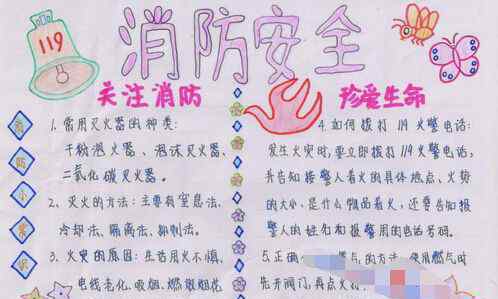 119
消防安全
关注消防
珍爱生命
消防小常识
1、常用灭火器的种类:
干粉泡火器、泡沫灭火器、
二氧化碳灭火器。
2、灭火的方法:主要有窒息法、
冷却法、隔离法、抑制法。
3、火灾的原因:生活用火不慎、
电线老化、吸烟、燃放烟花
4、如何拨打119火警电话:
发生火灾时,要立即拨打119火警电话,
并告知接警人着火的具体地点、火势
的大小、是什么物品着火,还要告知报
警人的姓名和报警用的电话号码。
5、正确 的方法:使用燃气时
先开阀门,再点火